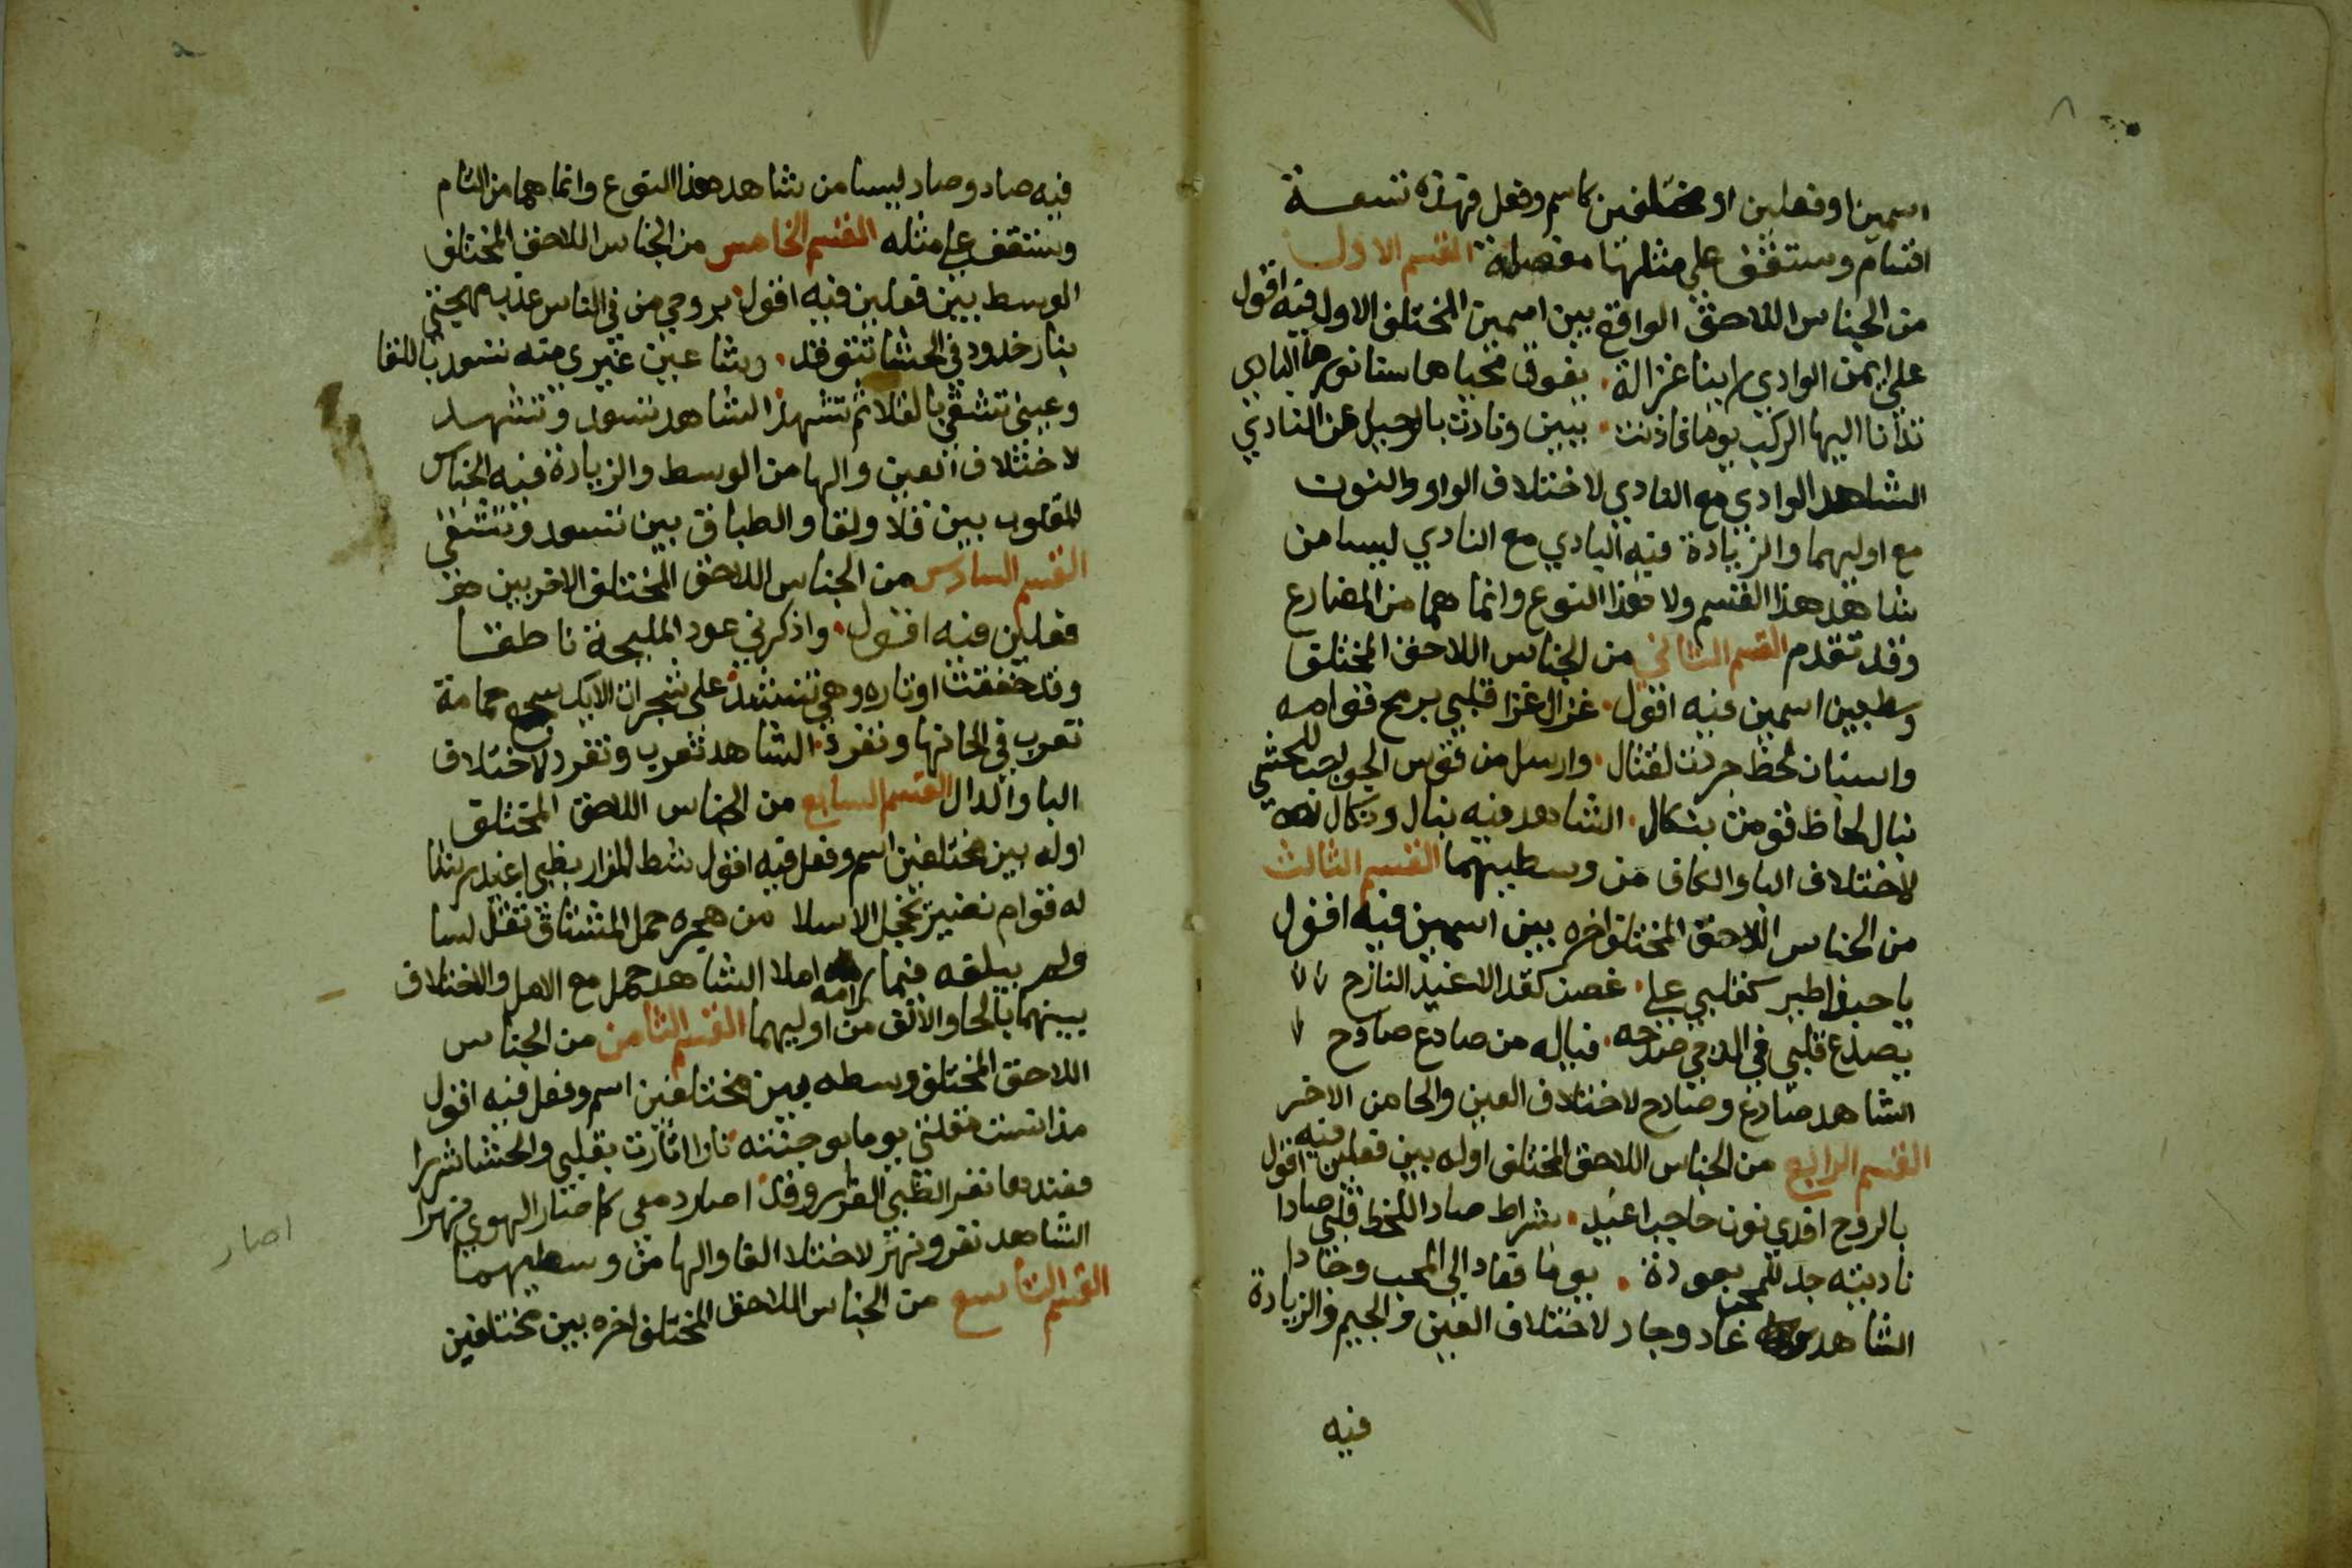 اسمين او فعلين او مختلفين كاسم وفعل فهذه تسعة
اقسام وستقف على مثلها مفصلة القسم الاول
من الجناس اللاحق الواقع بين اسمين المختلف الاول فيه اقول
على ايمن الوادي راينا غزالة بفوق محياها سنا نورها البادي
اليها الركب يوما فاذنت ببين ونادت بالرحيل عن النادي
الشاهد الوادي مع النادي لاختلاف الواو والنون
مع اوليهما والزيادة فيه البادي مع النادي ليسا من
شاهد هذا القسم ولا هذا النوع وانما هما من المضارع
وقد تقدم القسم الثاني من الجناس اللاحق المختلف
وسط بين اسمين فيه اقول غزال غزا قلبي برمح قوامه
واسنان لحظ جردت لقتال وارسل من قوس الحواجب للحشى
نبال لحاظ قومت بنكال الشاهد فيه نبال ونكال
لاختلاف البا والكاف من وسطيهما القسم الثالث
من الجناس اللاحق المختلف اخره بين اسمين فيه اقول
يا حبذا طير كقلبي على غصن كقد الاغيد النازح
يصدع قلبي في الدجى صدحه فياله من صادع صادح
الشاهد صادع وصادح لاختلاف العين والحا من الاخر
القسم الرابع من الجناس اللاحق المختلف اوله بين فعلين فيه اقول
بالروح افدي نون حاجب اغيد بشراط صاد اللحظ قلبي صادا
ناديته جد للمحب بعودة يوما فعاد الى المحب وجادا
الشاهد عاد وجاد لاختلاف العين والجيم والزيادة
فيه
فيه صاد وصاد ليسا من شاهد هذا النوع وانما هما من التام
وستقف على مثله القسم الخامس من الجناس اللاحق المختلف
الوسط بين فعلين فيه اقول بروحي من في الناس عذب مهجتي
بنار خدود في الحشا تتوقد رشا عين غيري منه تسعد باللقا
وعيني تشقى بالقلا ثم تشهد الشاهد تسعد وتشهد
لاختلاف العين والها من الوسط والزيادة فيه الجناس
المقلوب بين قلا ولقا والطباق بين تسعد وتشقى
القسم السادس من الجناس اللاحق المختلف الاخر بين
فعلين فيه اقول واذكرني عود المليحة ناطقا
وقد خفقت اوتاره وهي تنشد على شجرات الايك سجع حمامة
تغرب في الحانها وتغرد الشاهد تغرب وتغرد لاختلاف
البا والدال القسم السابع من الجناس اللاحق المختلف
اوله بين مختلفين اسم وفعل فيه اقول شط المزار بظبي اغيد رشا
له قوام نضير يخجل الاسلا من هجره حمل المشتاق ثقل اسا
ولم يبلغه فيما رامه املا الشاهد حمل مع الامل والاختلاف
بينهما بالحا والالف من اوليهما القسم الثامن من الجناس
اللاحق المختلف وسطه بين مختلفين اسم وفعل فيه اقول
مذ انست مقلتي يوما بوجنته نارا اثارت بقلبي والحشا شررا
فعندها نفر الظبي الغرير وقد اصار دمعي كما صار الهوى نهرا
الشاهد نفر ونهر لاختلا الفا والها من وسطيهما
القسم التاسع من الجناس اللاحق المختلف اخره بين مختلفين
اصار